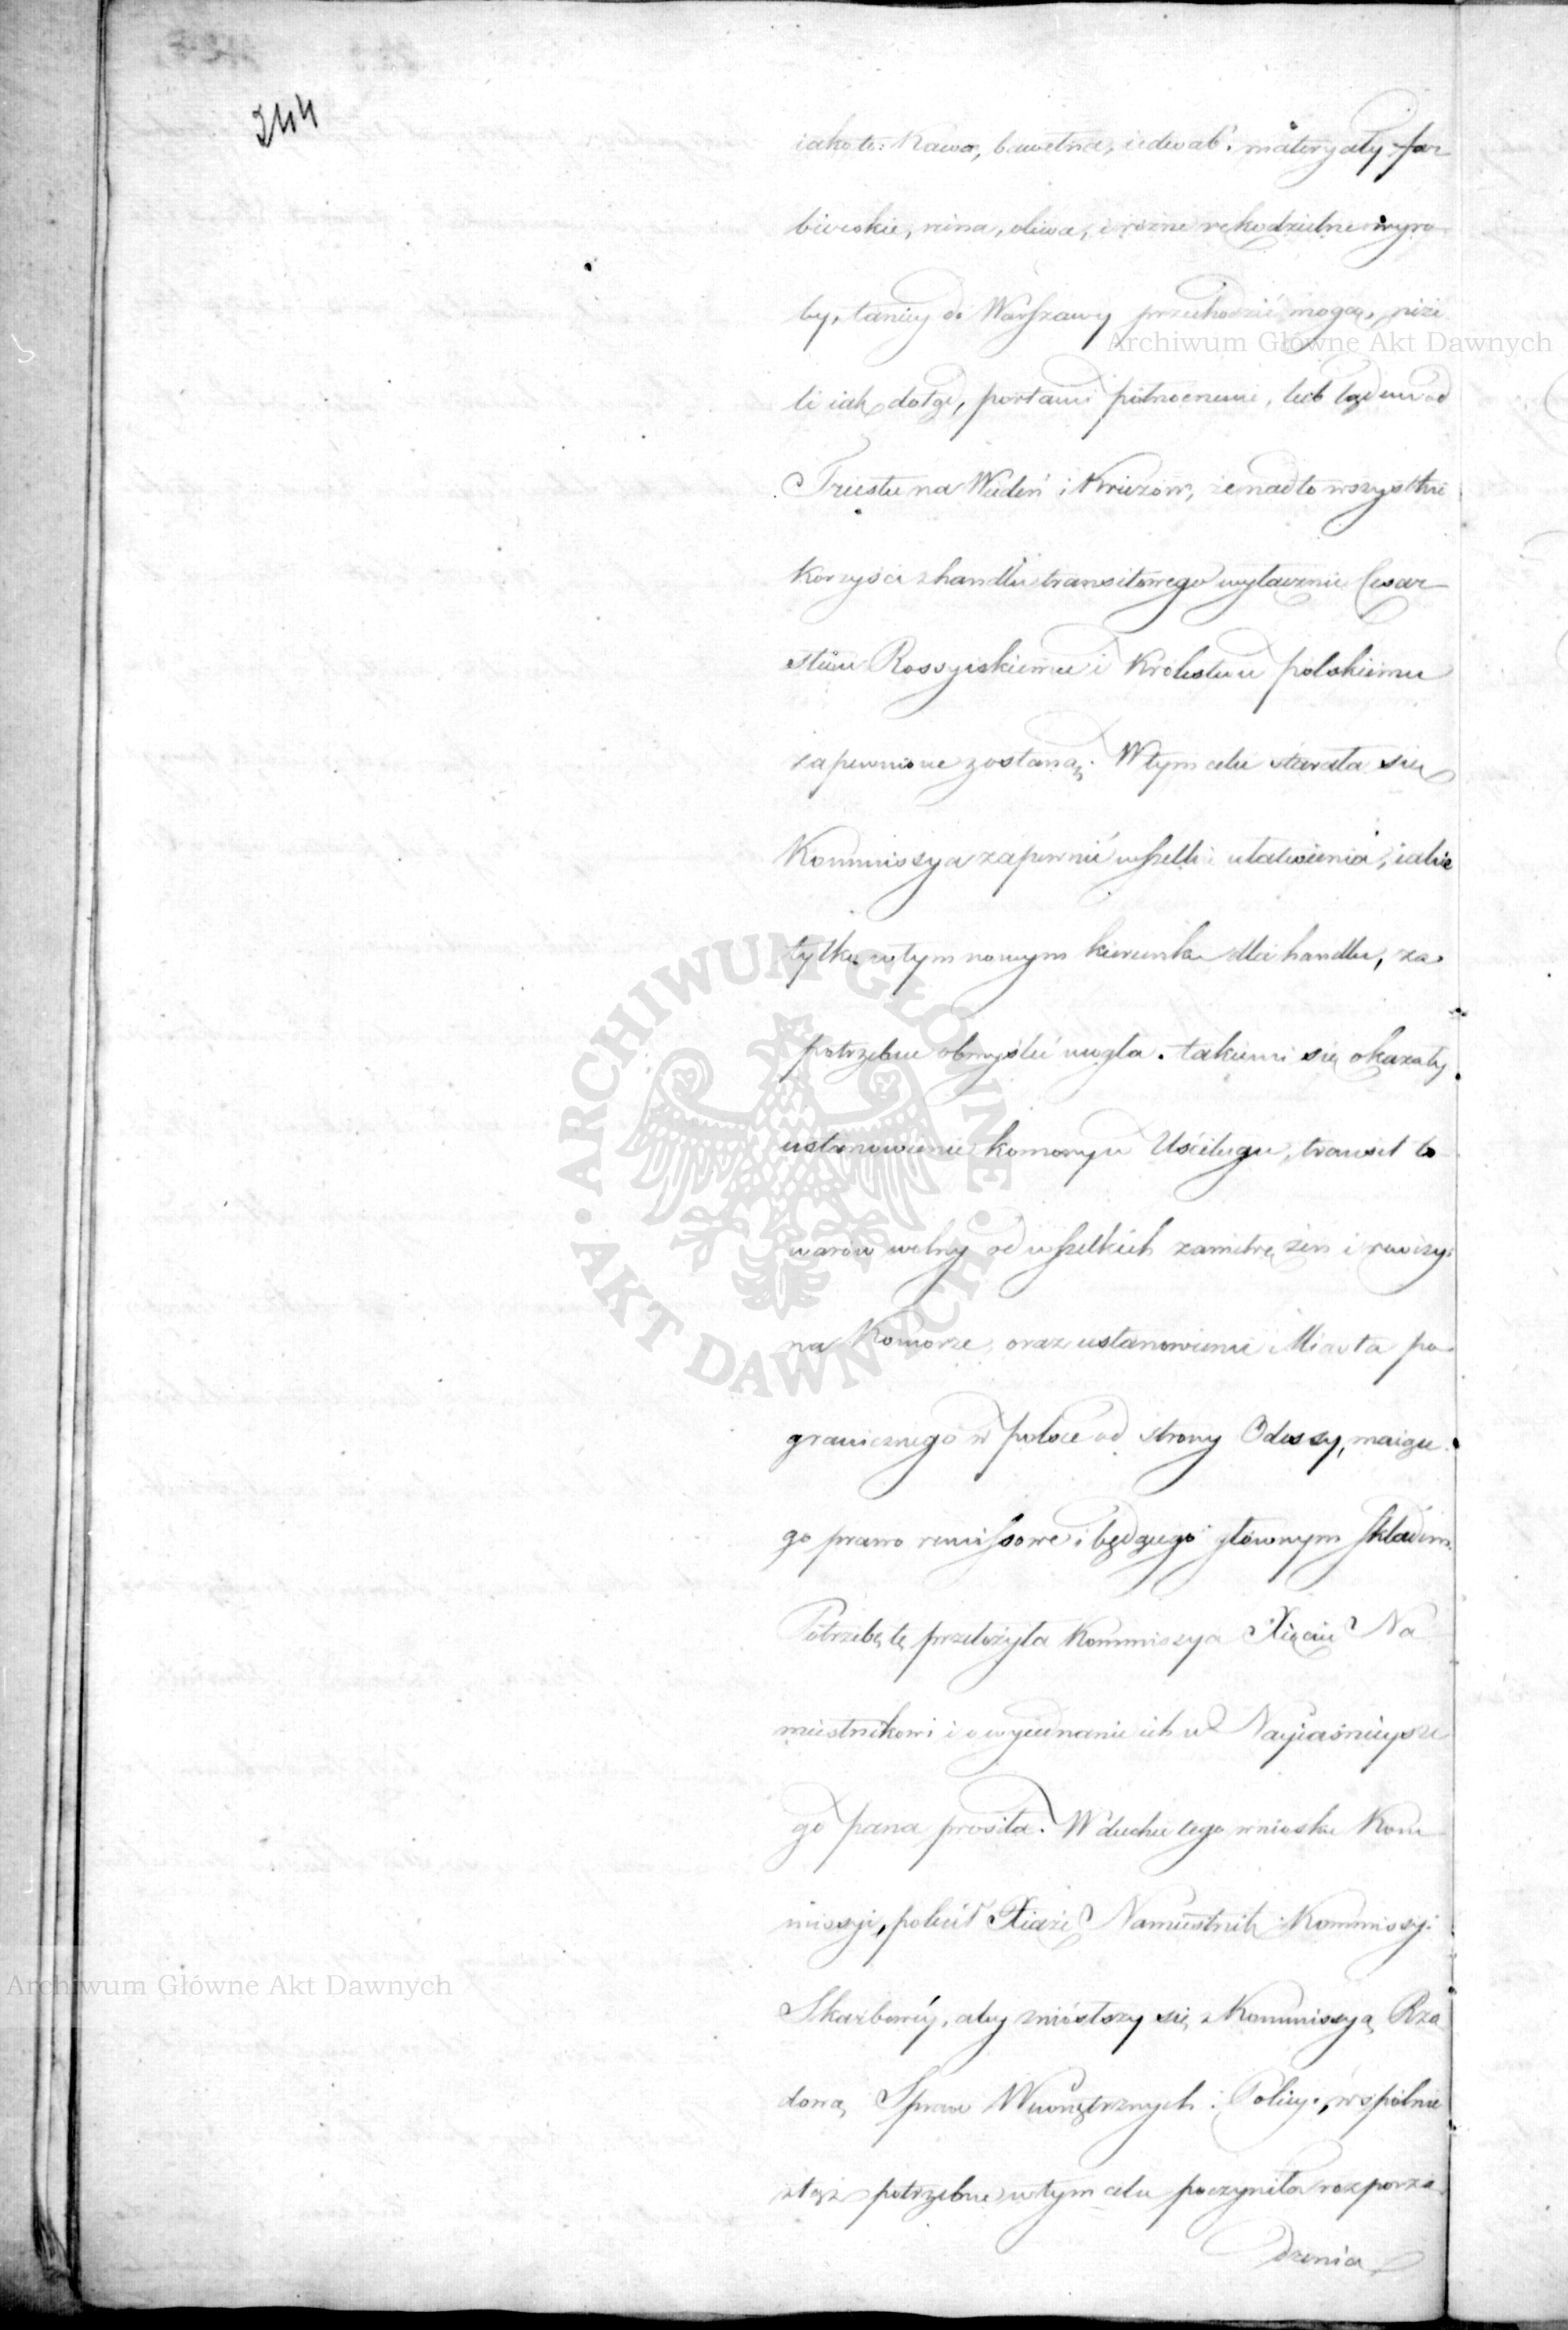 244
iako to: Kawa, bawełna, iedwab', materyały far
bierskie, wina, oliwa, i rożne rękodzielne wyro
by, taniey do Warszawy przechodzić mogą, niże
li iak dotąd, portami północnemi, lub lądem od
Triestu na Wiedeń i Kraków, że nadto wszystkie
korzyści z handlu transitowego wyłącznie Cesar
stwu Rossyiskiemu i Królestwu polskiemu
zapewnione zostaną. W tym celu starała się
Kommissya zapewnić wszelkie ułatwienia, iakie
tylko w tym nowym kierunku dla handlu, za
potrzebne obmyślić mogła. takiemi się okazały
ustanowienie komory w Uściługu, transit to
warów wolny od wszelkich zamitrężeń i rewizyi
na Komorze, oraz ustanowienie Miasta po
granicznego w polsce od strony Odessy, maiące
go prawo remissowe i będącego głównym składem.
Potrzebę tę przełożyła Kommissya Xięciu Na
miestnikowi i o wyiednanie ich u Nayiaśnieysze
go pana prosiła. W duchu tego wniosku Kom
missyi, polecił Xiąże Namiestnik Kommissyi
Skarbowéy, aby zniósłszy się z Kommissyą Rzą
dową Spraw Wewnętrznych i Policyi, wspólnie
z tąż potrzebne w tym celu poczyniła rozporzą
dzenia
Archiwum Główne Akt Dawnych
ARCHIWUM GŁÓWNE · AKT DAWNYCH ·
Archiwum Główne Akt Dawnych